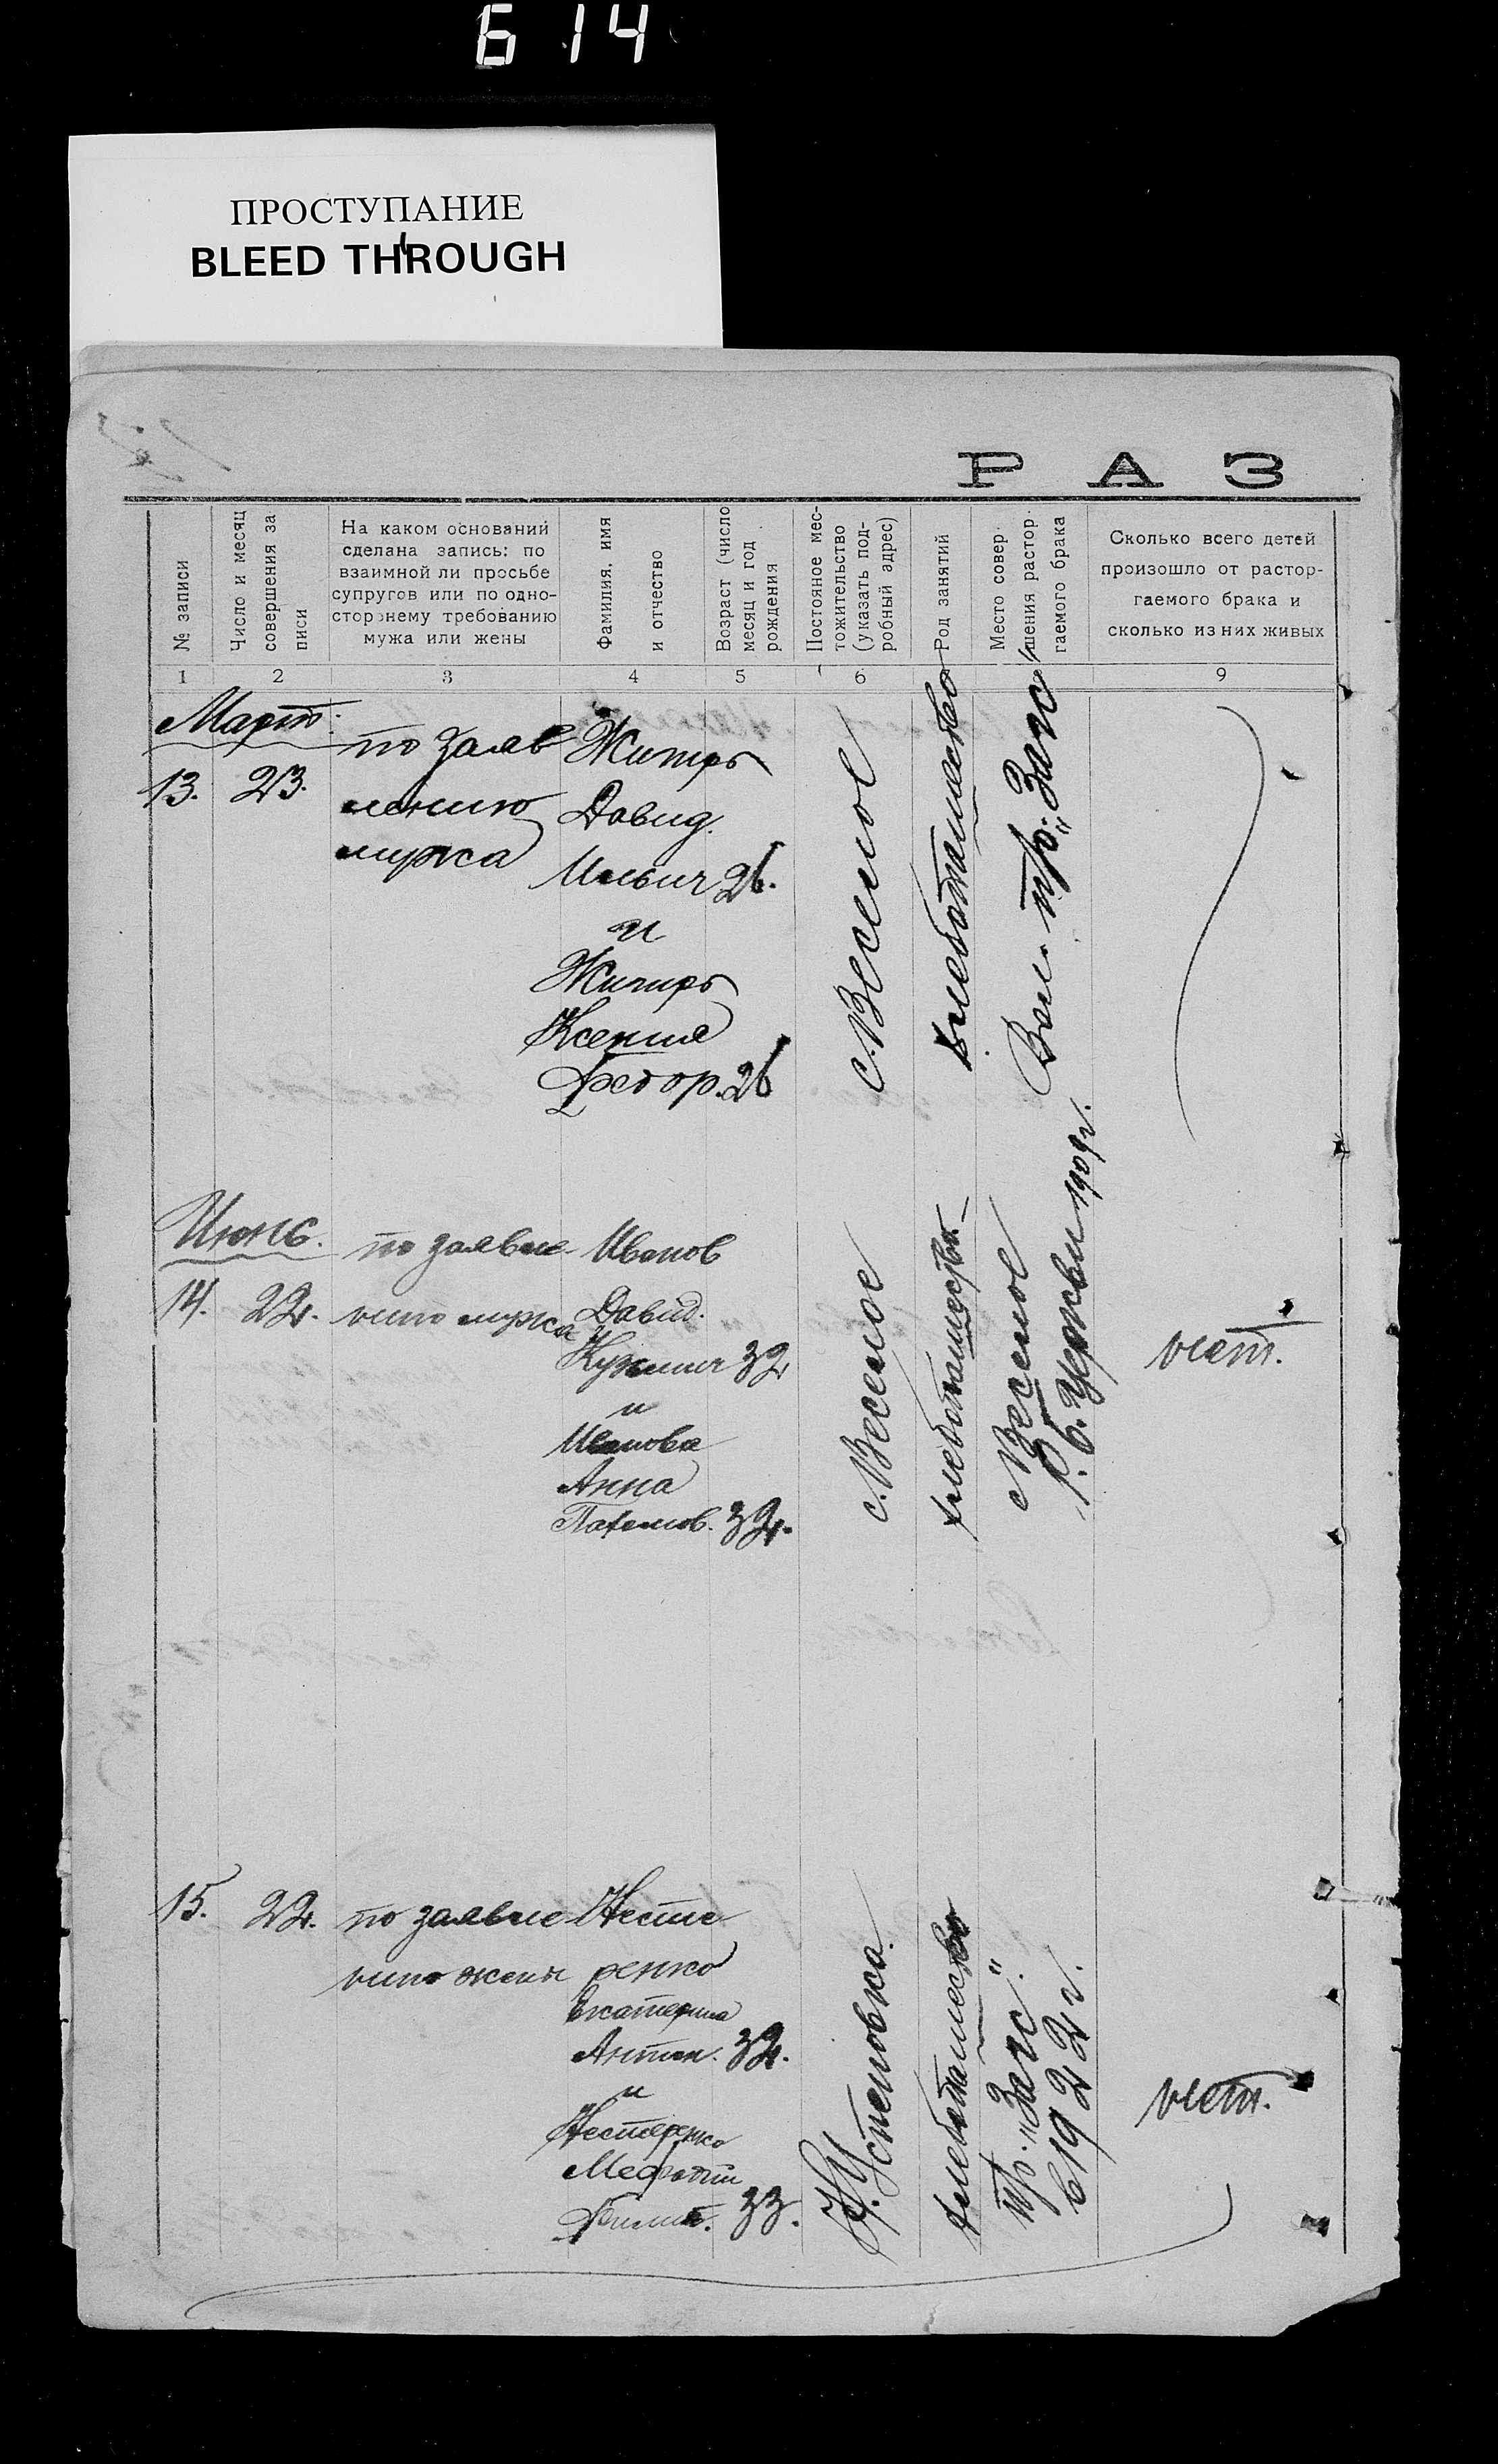 614
ПРОСТУПАНИЕ
BLEED THROUGH
РАЗ
№ записи
Число и месяц
совершения за
писи
На каком оснований
сделана запись: по
взаимной ли просьбе
супругов или по одно-
стороннему требованию
мужа или жены
Фамилия, имя
и отчество
Возраст (число
месяц и год
рождения
Постоянное мес-
тожительство
(указать под-
робный адрес)
Род занятий
Место совер.
шения растор.
гаемого брака
Сколько всего детей
произошло от растор-
гаемого брака и
сколько из них живых
1 2 3 4 5 6 9
Март.
13. 23.
по заяв
лению
мужа
Житарь
Давид
Ильич 26.
и
Житарь
Ксения
Федор. 26
с. Веселое
хлебопашество
Вол. пр. „Загс
Июнь.
14. 22.
по заявле
нию мужа
Иванов
Давид.
Кузмич 32
и
Иванова
Анна
Пахомов. 32.
с. Веселое
хлебопашество
с Веселое
Р. б. Церкви 1909 г.
нет.
15. 22.
по заявле
нию жены
Несте
ренко
Екатерина
Антон. 32.
и
Нестеренко
Мефодий
33.
Успеновка.
хлебопашество
пр. „Загс."
в 1922 г.
нет.